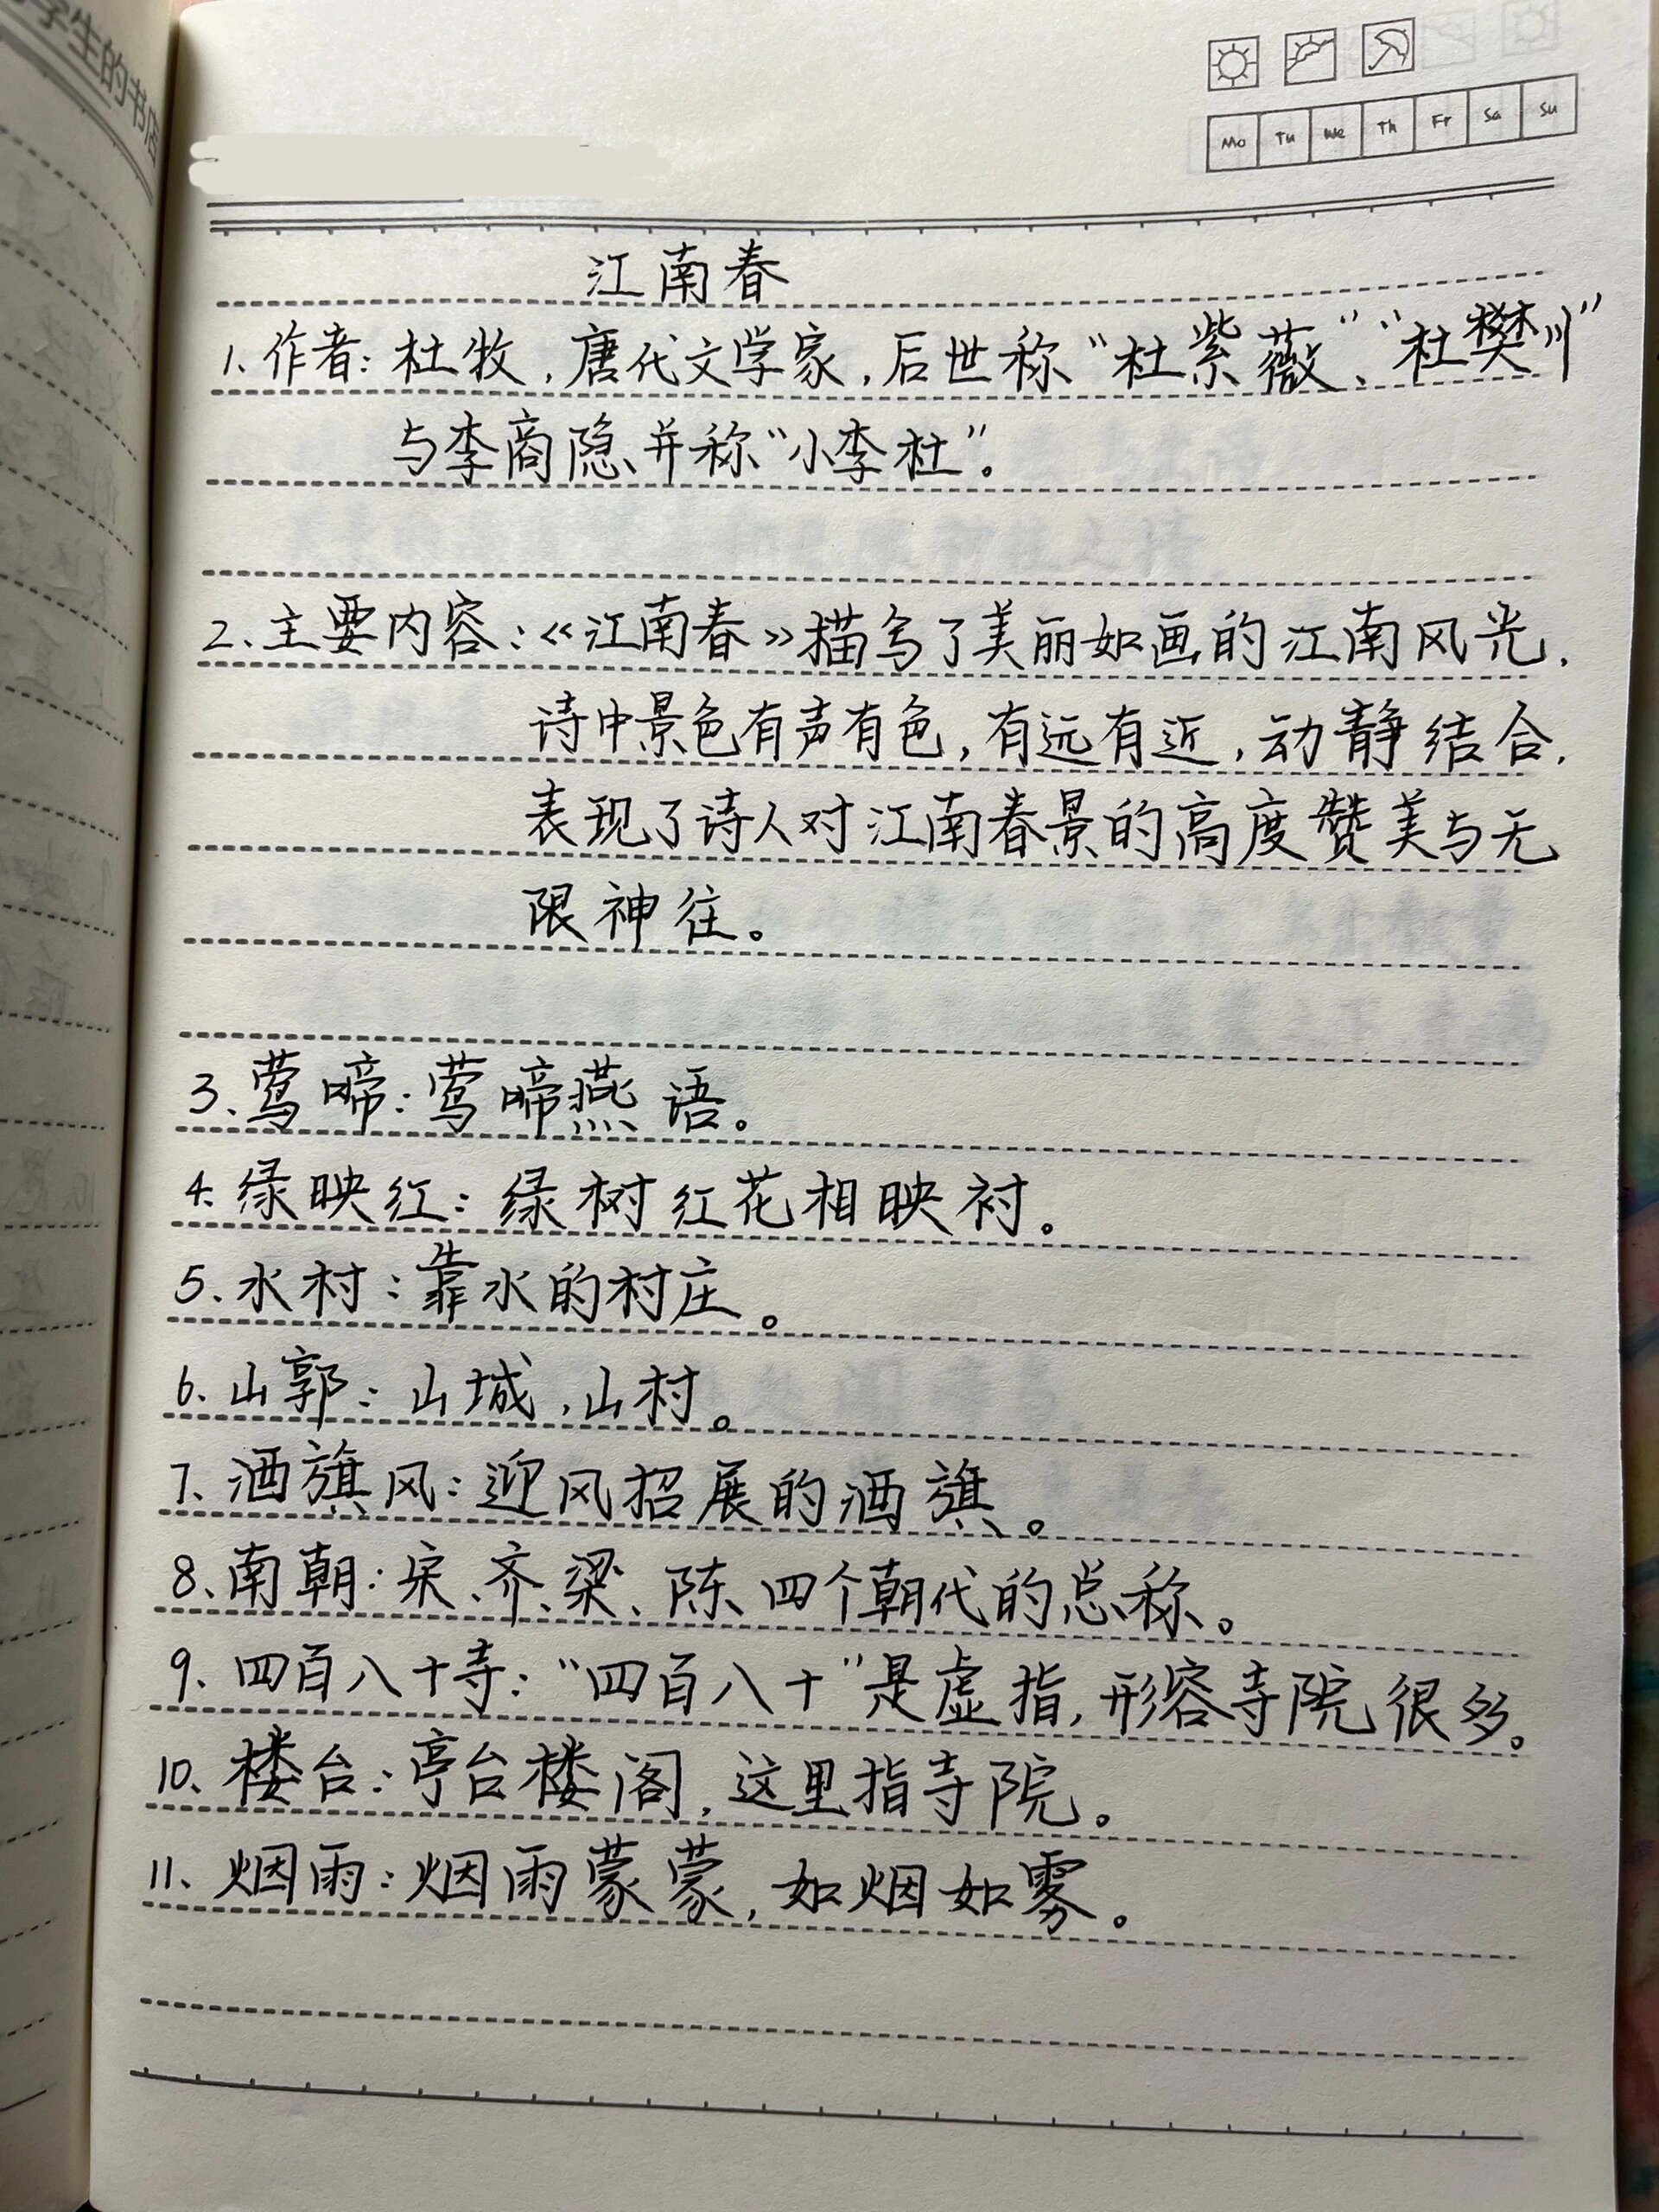 学生的书店
Mo Tu We Th Fr Sa Su
江南春
1.作者：杜牧，唐代文学家，后世称“杜紫薇”、“杜樊川”
与李商隐、并称“小李杜”。
2.主要内容：《江南春》描写了美丽如画的江南风光，
诗中景色有声有色，有远有近，动静结合，
表现了诗人对江南春景的高度赞美与无
限神往。
3、莺啼：莺啼燕语。
4.绿映红：绿树红花相映衬。
5.水村：靠水的村庄。
6.山郭：山城，山村。
7、酒旗风：迎风招展的酒旗。
8、南朝：宋、齐、梁、陈、四个朝代的总称。
9、四百八十寺：“四百八十”是虚指，形容寺院很多。
10、楼台：亭台楼阁，这里指寺院。
11、烟雨：烟雨蒙蒙，如烟如雾。